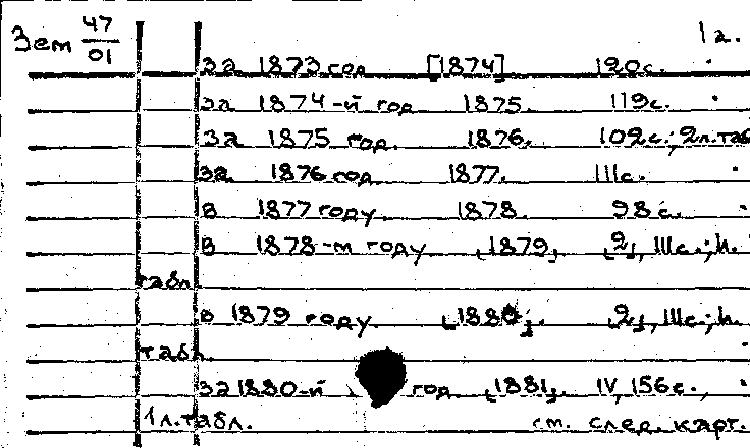 Зем 47/01 1а.
за 1873 год [1874] 120с.
за 1874-й год 1875. 119с.
за 1875 год. 1876. 102с.; 2л.таб
за 1876 год 1877. IIIс.
в 1877 году. 1878. 98с.
в 1878-м году [1879] [2], IIIс.;
табл.
в 1879 году [1880]. [2], IIIс.;
табл.
за 1880-й год [1881]. IV, 156с.,
1л.табл. см. след. карт.